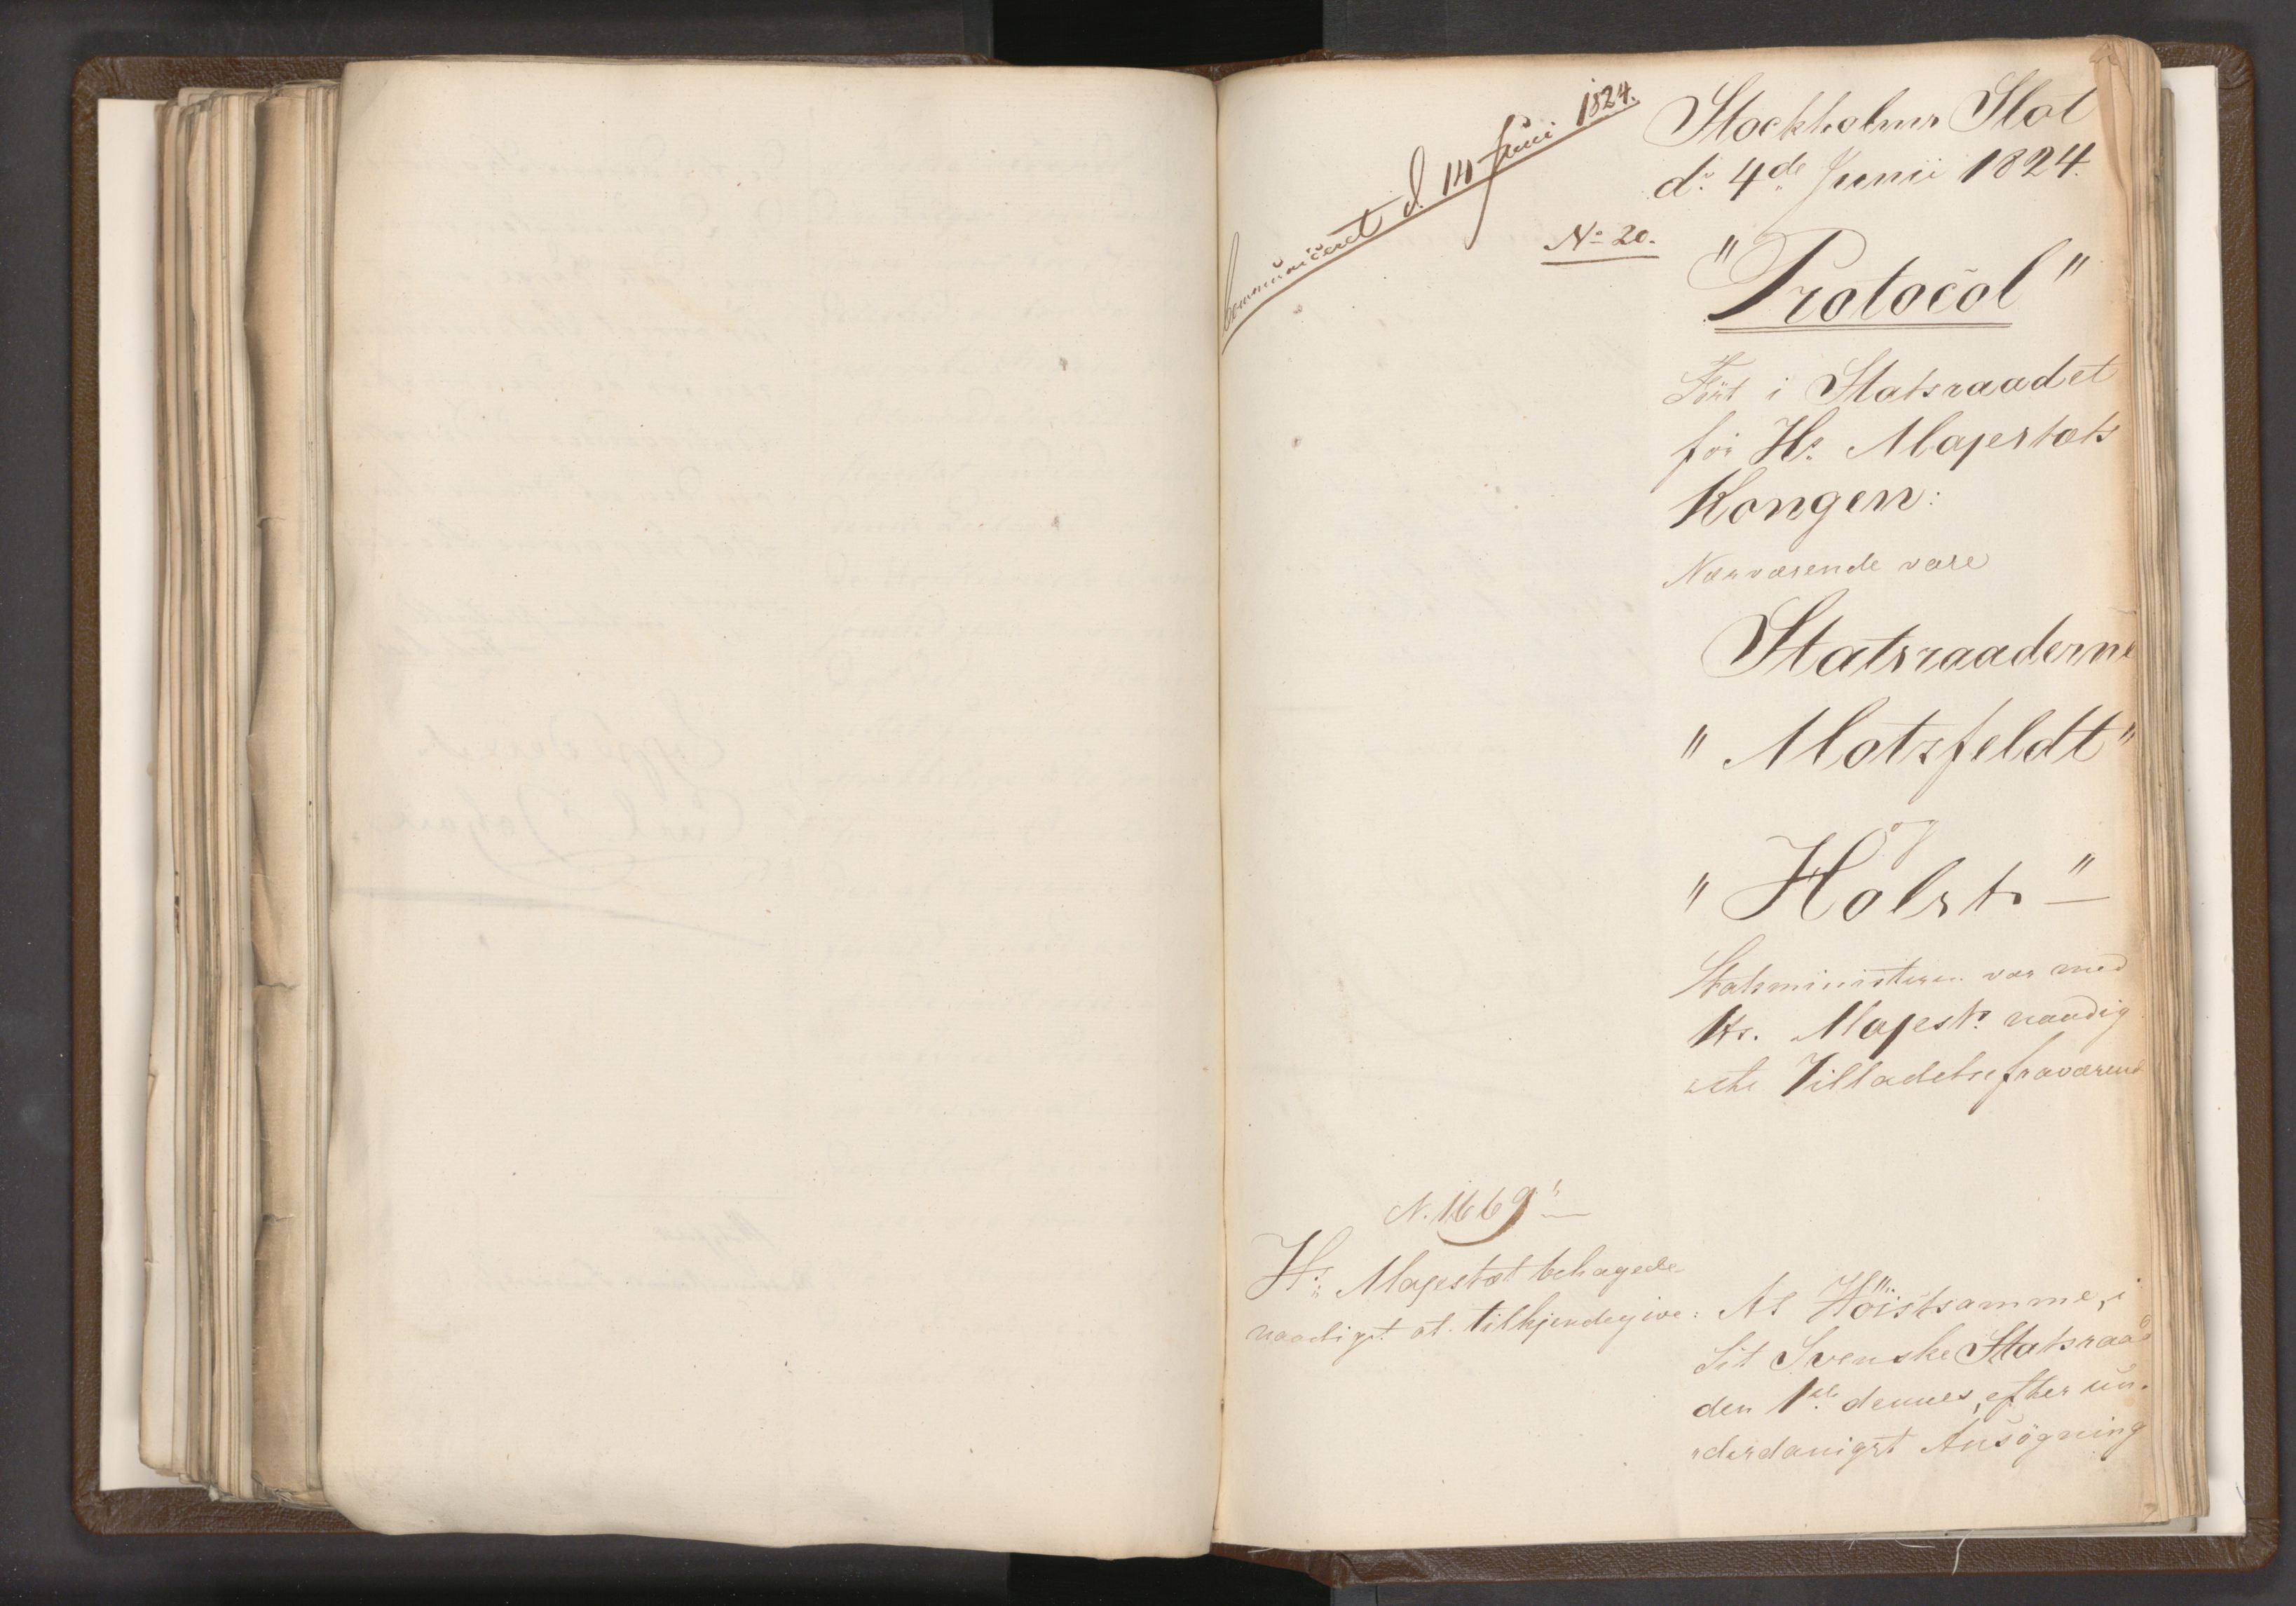 Communiceret d. 14 Juni 1824.
Stockholms Slot
d: 4de Junii 1824.
No 20.
"Protocol"
Ført i Statsraadet
for Hs. Majestæts
Kongen:
Nærværende vare
Statsraaderne
"Motzfeldt"
og
"Holst"
Statsministeren var med
Hs. Majest: naadig
ste Tilladelse fraværende
N. 1669"
Hs: Majestæt behagede
naadigst at tilkjendegive: At Høistsamme, i
Sit Svenske Statsraad
den 1ste dennes, efter un-
derdanigst Ansøgning